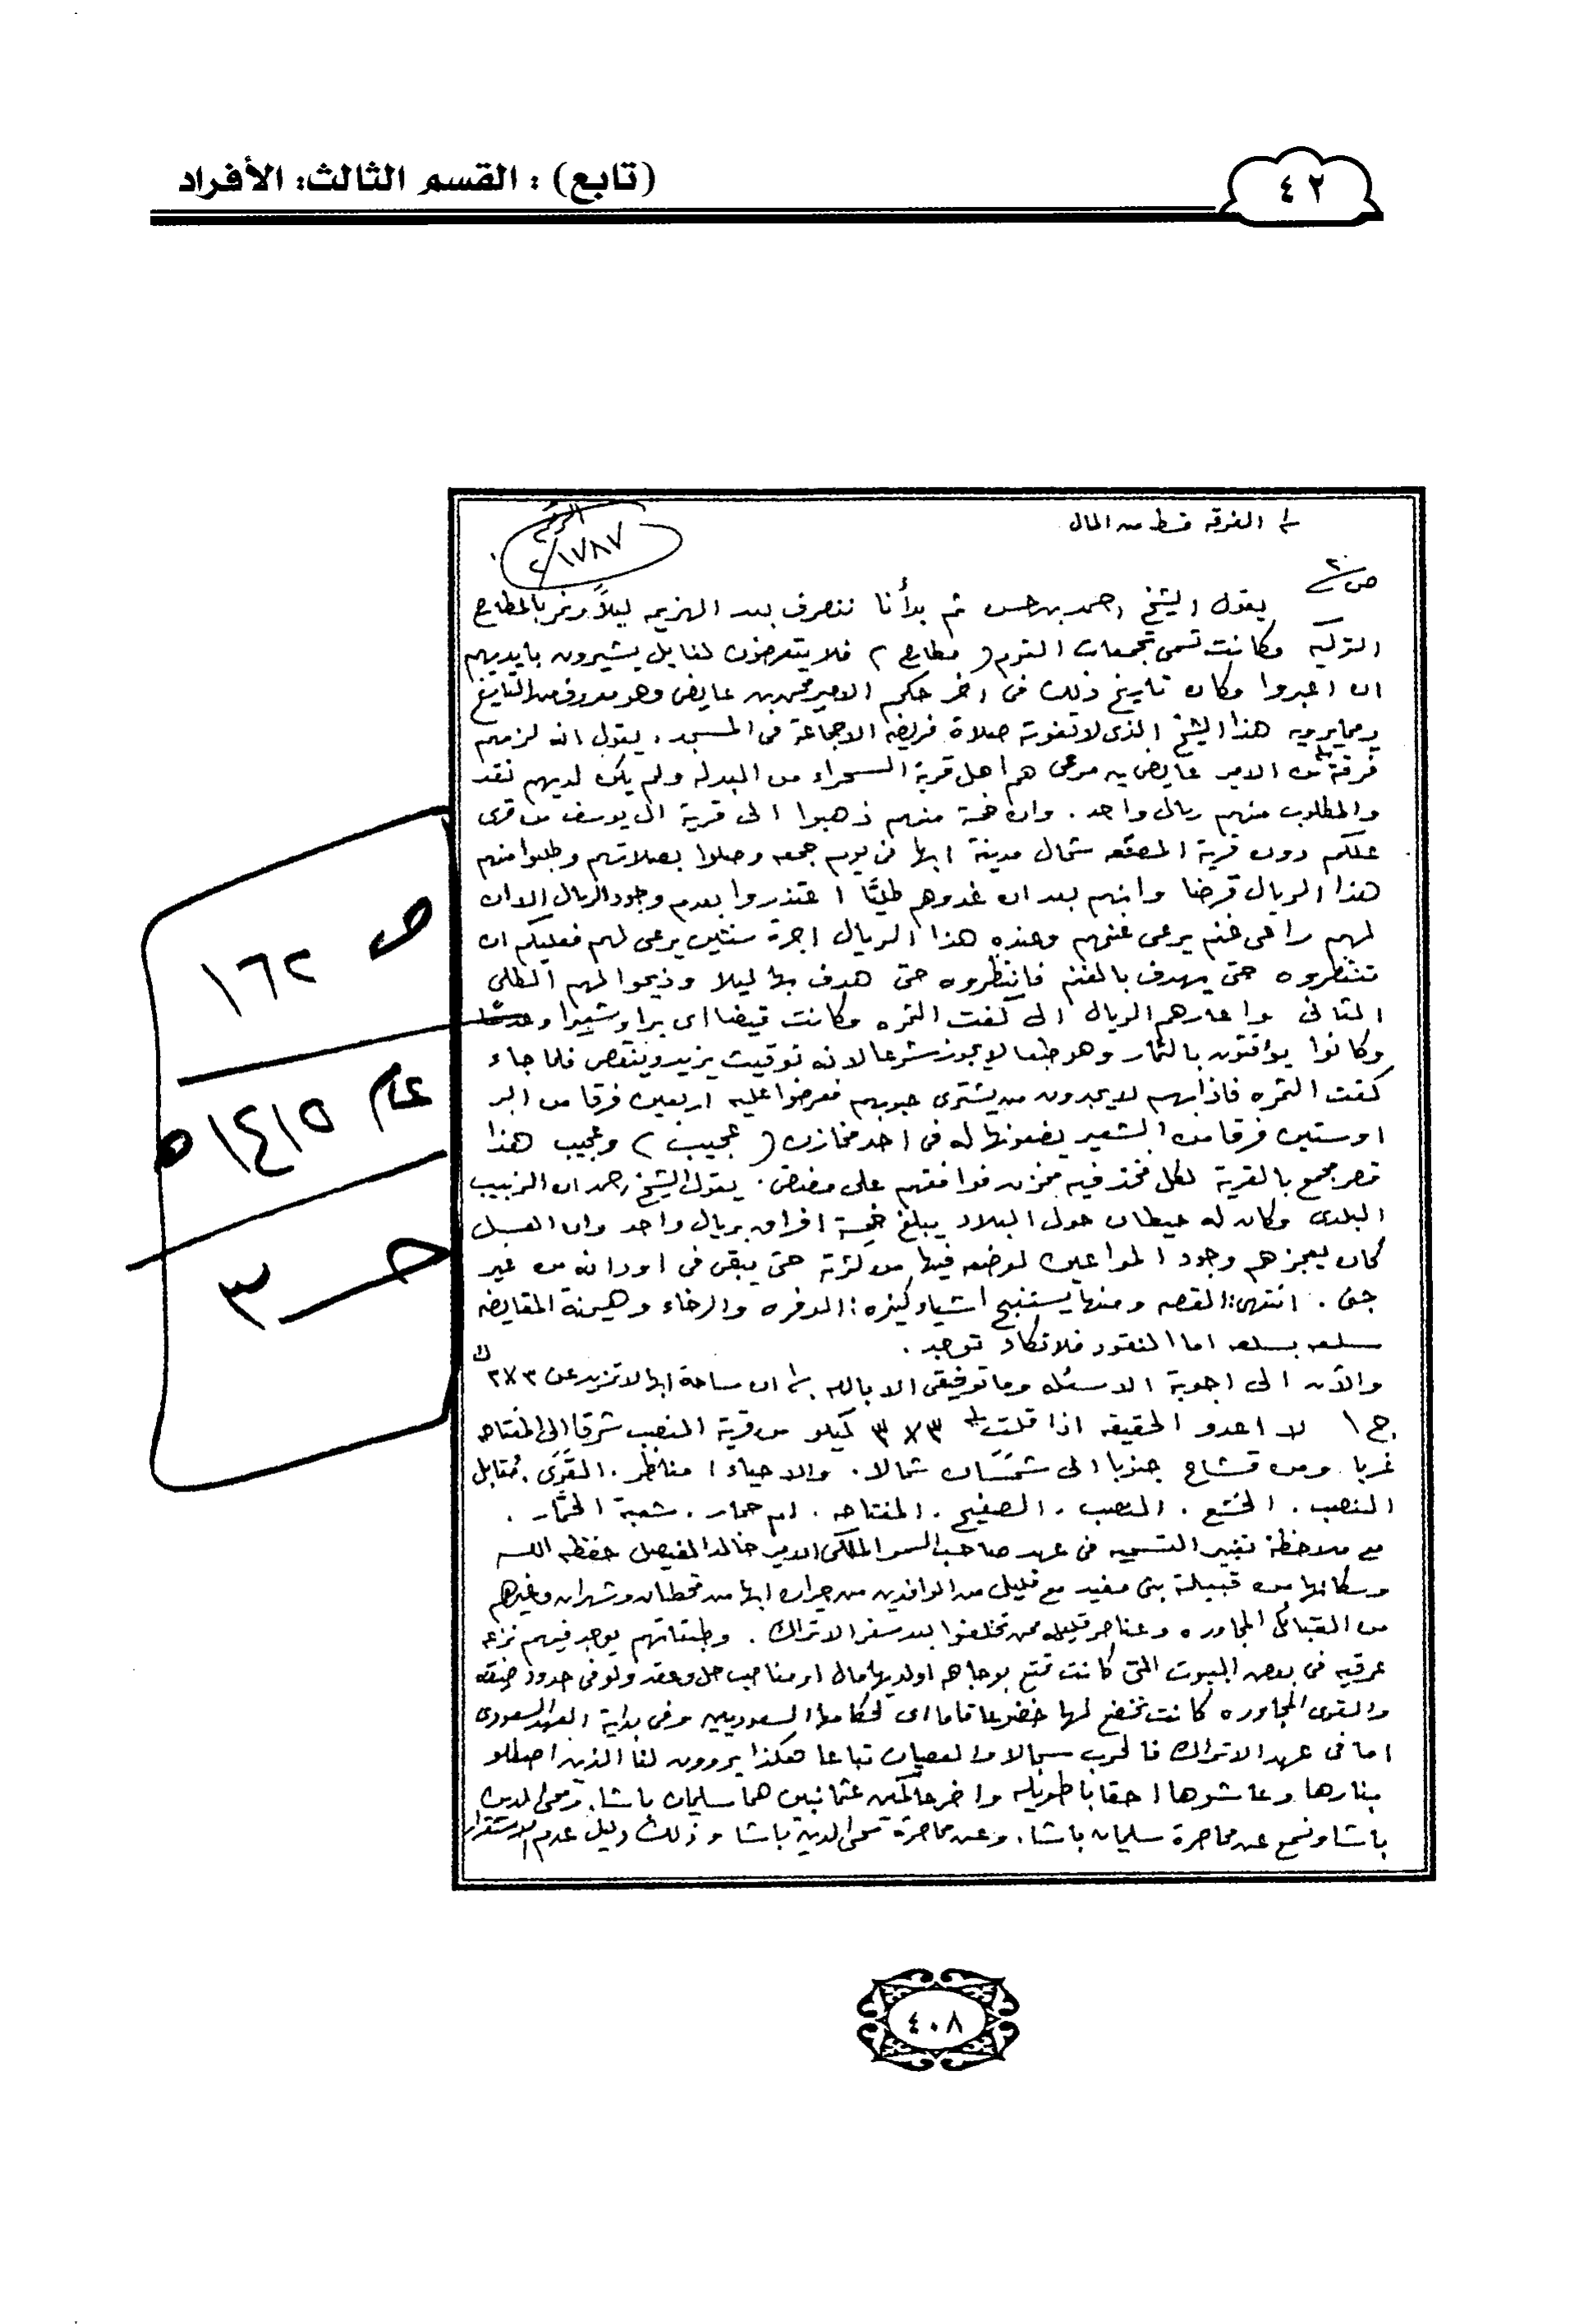 ٤٢
(تابع) : القسم الثالث: الأفراد
١/ الفرقه قسط من المال
الرقم
٢/١٧٨٧
ص ٢
يقول الشيخ احمد بن حسن ثم بدأنا ننصرف بعد الهزيمه ليلاً ونمر بالمطارح
التركيه وكانت تسمى تجمعات القوم ( مطارح ) فلا يتعرضون لنا بل يشيرون بايديهم
ان اعبروا وكان تاريخ ذلك فى اخر حكم الامير محمد بن عايض وهو معروف من التاريخ
ومما يرويه هذا الشيخ الذى لا تفوته صلاة فريضه الا جماعة فى المسجد . يقول انه لزمهم
فرقة من الامير عايض بن مرعى هم اهل قرية السحراء من البدله ولم يكن لديهم نقد
والمطلوب منهم ريال واحد . وان خمسة منهم ذهبوا الى قرية ال يوسف من قرى
علكم دون قرية المصقعه شمال مدينة ابها فى يوم جمعه وصلوا بصلاتهم وطلبوا منهم
هذا الريال قرضا وانهم بعد ان غدوهم طليًّا اعتذروا بعدم وجود الريال الا ان
لهم راعى غنم يرعى غنمهم وعنده هذا الريال اجرة سنتين يرعى لهم فعليكم ان
تنتظروه حتى يهدف بالغنم فانتظروه حتى هدف بها ليلا وذبحوا لهم الطلى
الثانى واعارهم الريال الى كفت الثمره وكانت قيضا اى برا وشعيرا وعدسًا
وكانوا يوقتون بالثمار وهو طبعا لا يجوز شرعا لانه توقيت يزيد وينقص فلما جاء
كفت الثمره فاذا بهم لا يجدون من يشترى حبوبهم فعرضوا عليه اربعين فرقا من البر
او ستين فرقا من الشعير يضعونها له فى احد مخازن ( عجيب ) وعجيب هذا
قصر مجمع بالقرية لكل فخذ فيه مخزن فوافقهم على مضض . يقول الشيخ احمد ان الزبيب
البلدى وكان له حيطان حول البلاد يبلغ خمسة افراق بريال واحد وان العسل
كان يعجزهم وجود المواعين لوضعه فيها من كثرته حتى يبقى فى اورانه من غير
جنى . انتهى: القصه ومنها يستنبح اشياء كثيره : الوفره والرخاء وهيمنة المقايضه
سلعه بسلعه اما النقود فلا تكاد توجد .
والآن الى اجوبة الاسئله وما توفيقى الا بالله ١/ ان مساحة ابها لا تزيد عن ٣×٣ ك
ج ١ لا اعدو الحقيقه اذا قلت ٣×٣ كيلو من قرية المنصب شرقا الى المفتاحه
غربا ومن قشاع جنوبا الى شمسان شمالا . والاحياء : مناظر . القرى . مقابل
المنصب . الخشع . النصب . الصفيح . المفتاحه . ام حمار . شعبة الخمار .
مع ملاحظة تغيير التسميه فى عهد صاحب السمو الملكى الامير خالد الفيصل حفظه الله
وسكانها من قبيلة بنى مغيد مع قليل من الوافدين من جيران ابها من قحطان وشهران وغيرهم
من القبائل المجاوره وعناصر قليله ممن تخلفوا بعد سفر الاتراك . وطبقاتهم يوجد فيهم نزعه
عرقيه فى بعض البيوت التى كانت تمتع بوجاهه او لديها مال او مناصب حل وعقد ولو فى حدود ضيقه
والقرى المجاوره كانت تخضع لها خضوعا تاما اى لحكامها السعوديين وفى بداية العهد السعودى
اما فى عهد الاتراك فالحرب سجالا والعصيان تباعا هكذا يروون لنا الذين اصطلو
بنارها وعاشوها احقابا طويله واخر حاكمين عثمانيين هما سليمان باشا . ومحى الدين
باشا ونسمع عن محاصرة سليمان باشا . وعن محاصرة محى الدين باشا وذلك دليل عدم الاستقرار
ص ١٦٢
عام ١٤١٥ه
حـ ٣
٤٠٨